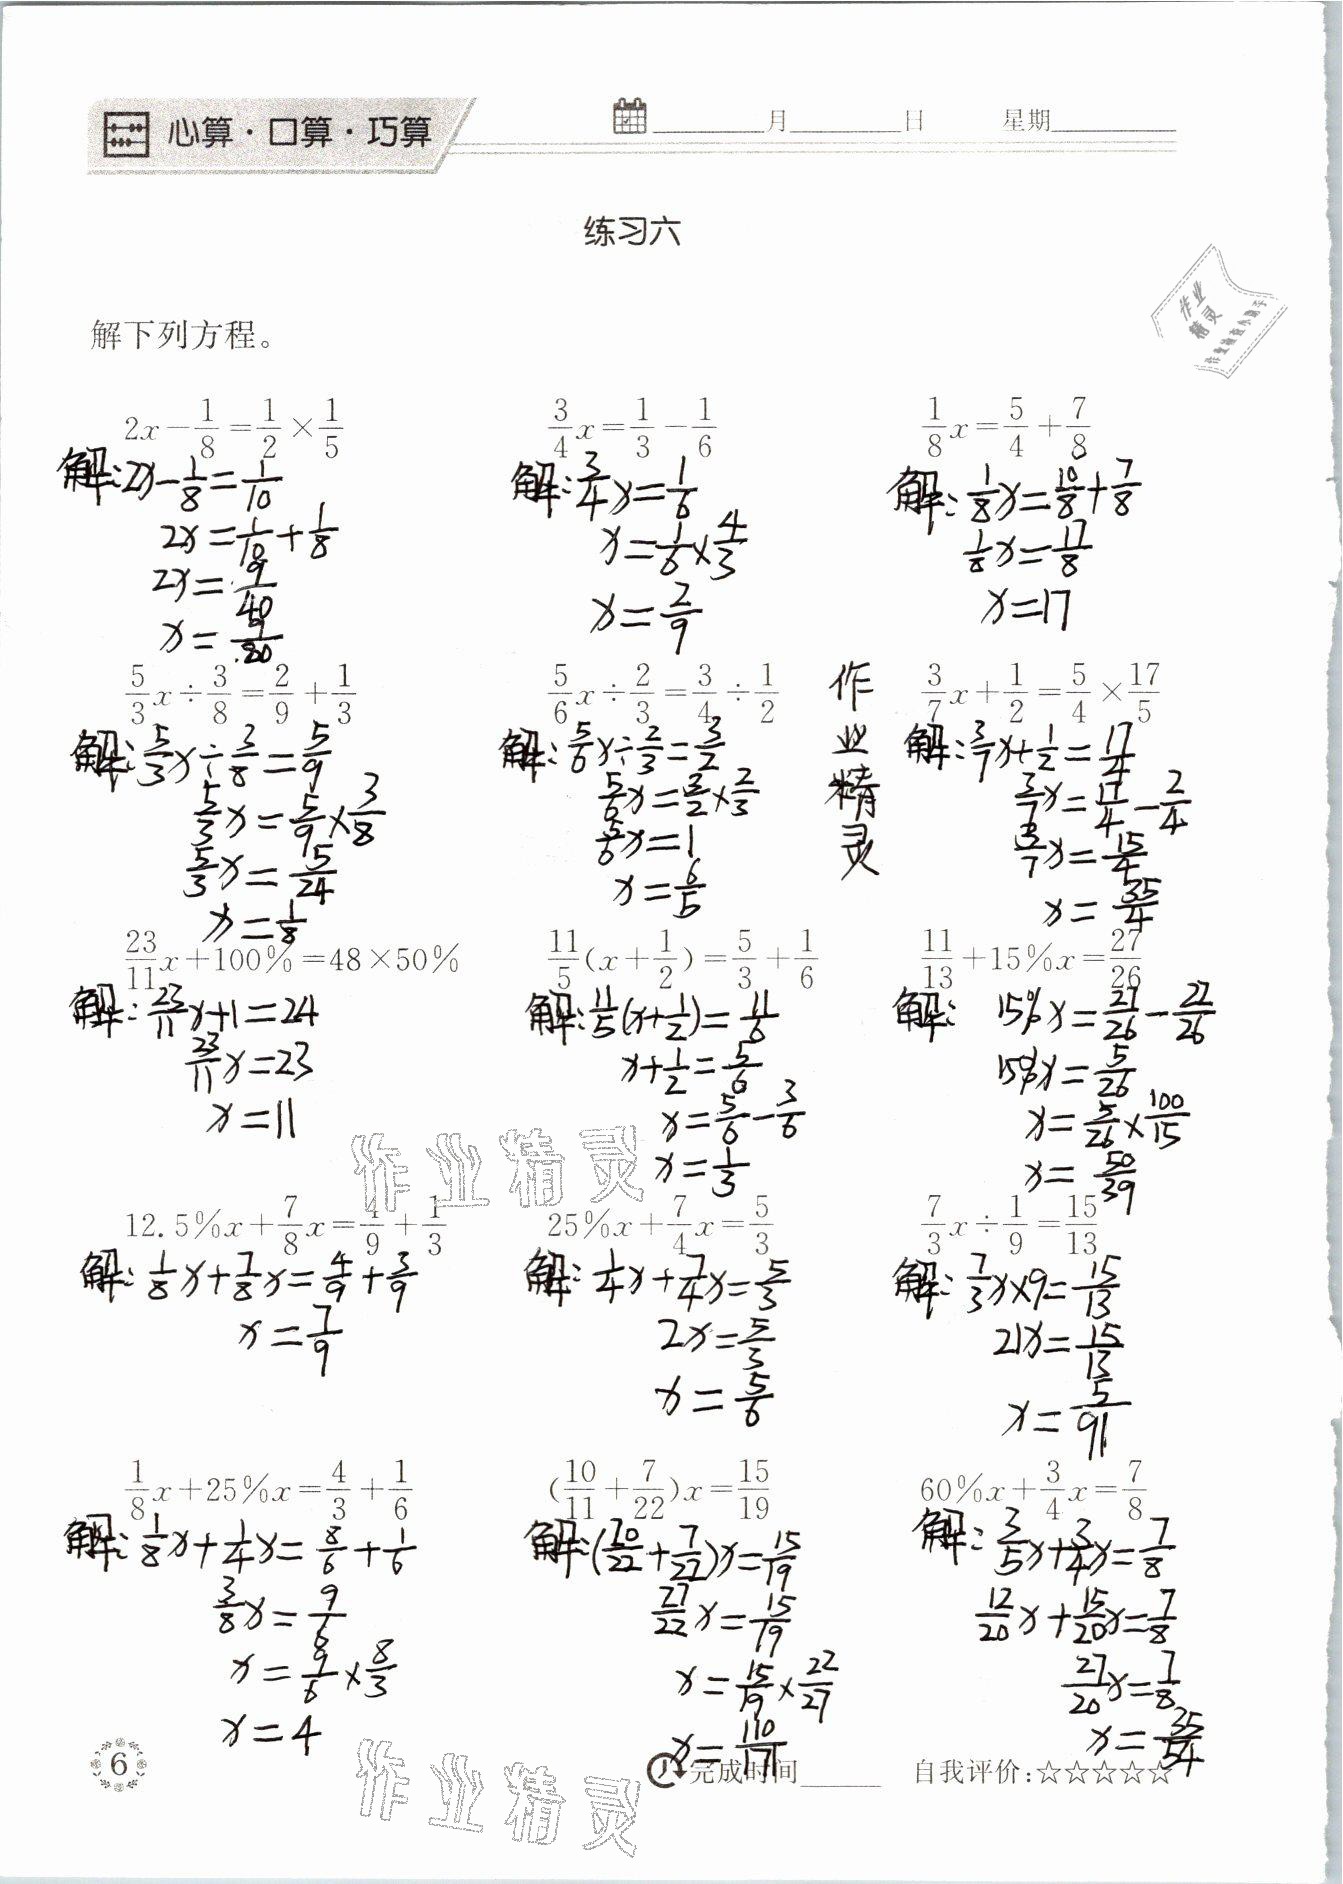 心算·口算·巧算
____月____日 星期____
练习六
作业精灵
作业检查小助手
解下列方程。
2x-1/8=1/2×1/5
解:2x-1/8=1/10
2x=1/10+1/8
2x=9/40
x=9/80
3/4x=1/3-1/6
解:3/4x=1/6
x=1/6×4/3
x=2/9
1/8x=5/4+7/8
解:1/8x=10/8+7/8
1/8x=17/8
x=17
5/3x÷3/8=2/9+1/3
解:5/3x÷3/8=5/9
5/3x=5/9×3/8
5/3x=5/24
x=1/8
5/6x÷2/3=3/4÷1/2
解:5/6x÷2/3=3/2
5/6x=3/2×2/3
5/6x=1
x=6/5
作业精灵
3/7x+1/2=5/4×17/5
解:3/7x+1/2=17/4
3/7x=17/4-2/4
3/7x=15/4
x=35/4
23/11x+100%=48×50%
解:23/11x+1=24
23/11x=23
x=11
11/5(x+1/2)=5/3+1/6
解:11/5(x+1/2)=11/6
x+1/2=5/6
x=5/6-3/6
x=1/3
11/13+15%x=27/26
解:15%x=27/26-22/26
15%x=5/26
x=5/26×100/15
x=50/39
作业精灵
12.5%x+7/8x=4/9+1/3
解:1/8x+7/8x=4/9+3/9
x=7/9
25%x+7/4x=5/3
解:1/4x+7/4x=5/3
2x=5/3
x=5/6
7/3x÷1/9=15/13
解:7/3x×9=15/13
21x=15/13
x=5/91
1/8x+25%x=4/3+1/6
解:1/8x+1/4x=8/6+1/6
3/8x=9/6
x=9/6×8/3
x=4
(10/11+7/22)x=15/19
解:(20/22+7/22)x=15/19
27/22x=15/19
x=15/19×22/27
x=110/171
60%x+3/4x=7/8
解:3/5x+3/4x=7/8
12/20x+15/20x=7/8
27/20x=7/8
x=35/54
6
完成时间____ 自我评价:☆☆☆☆☆
作业精灵